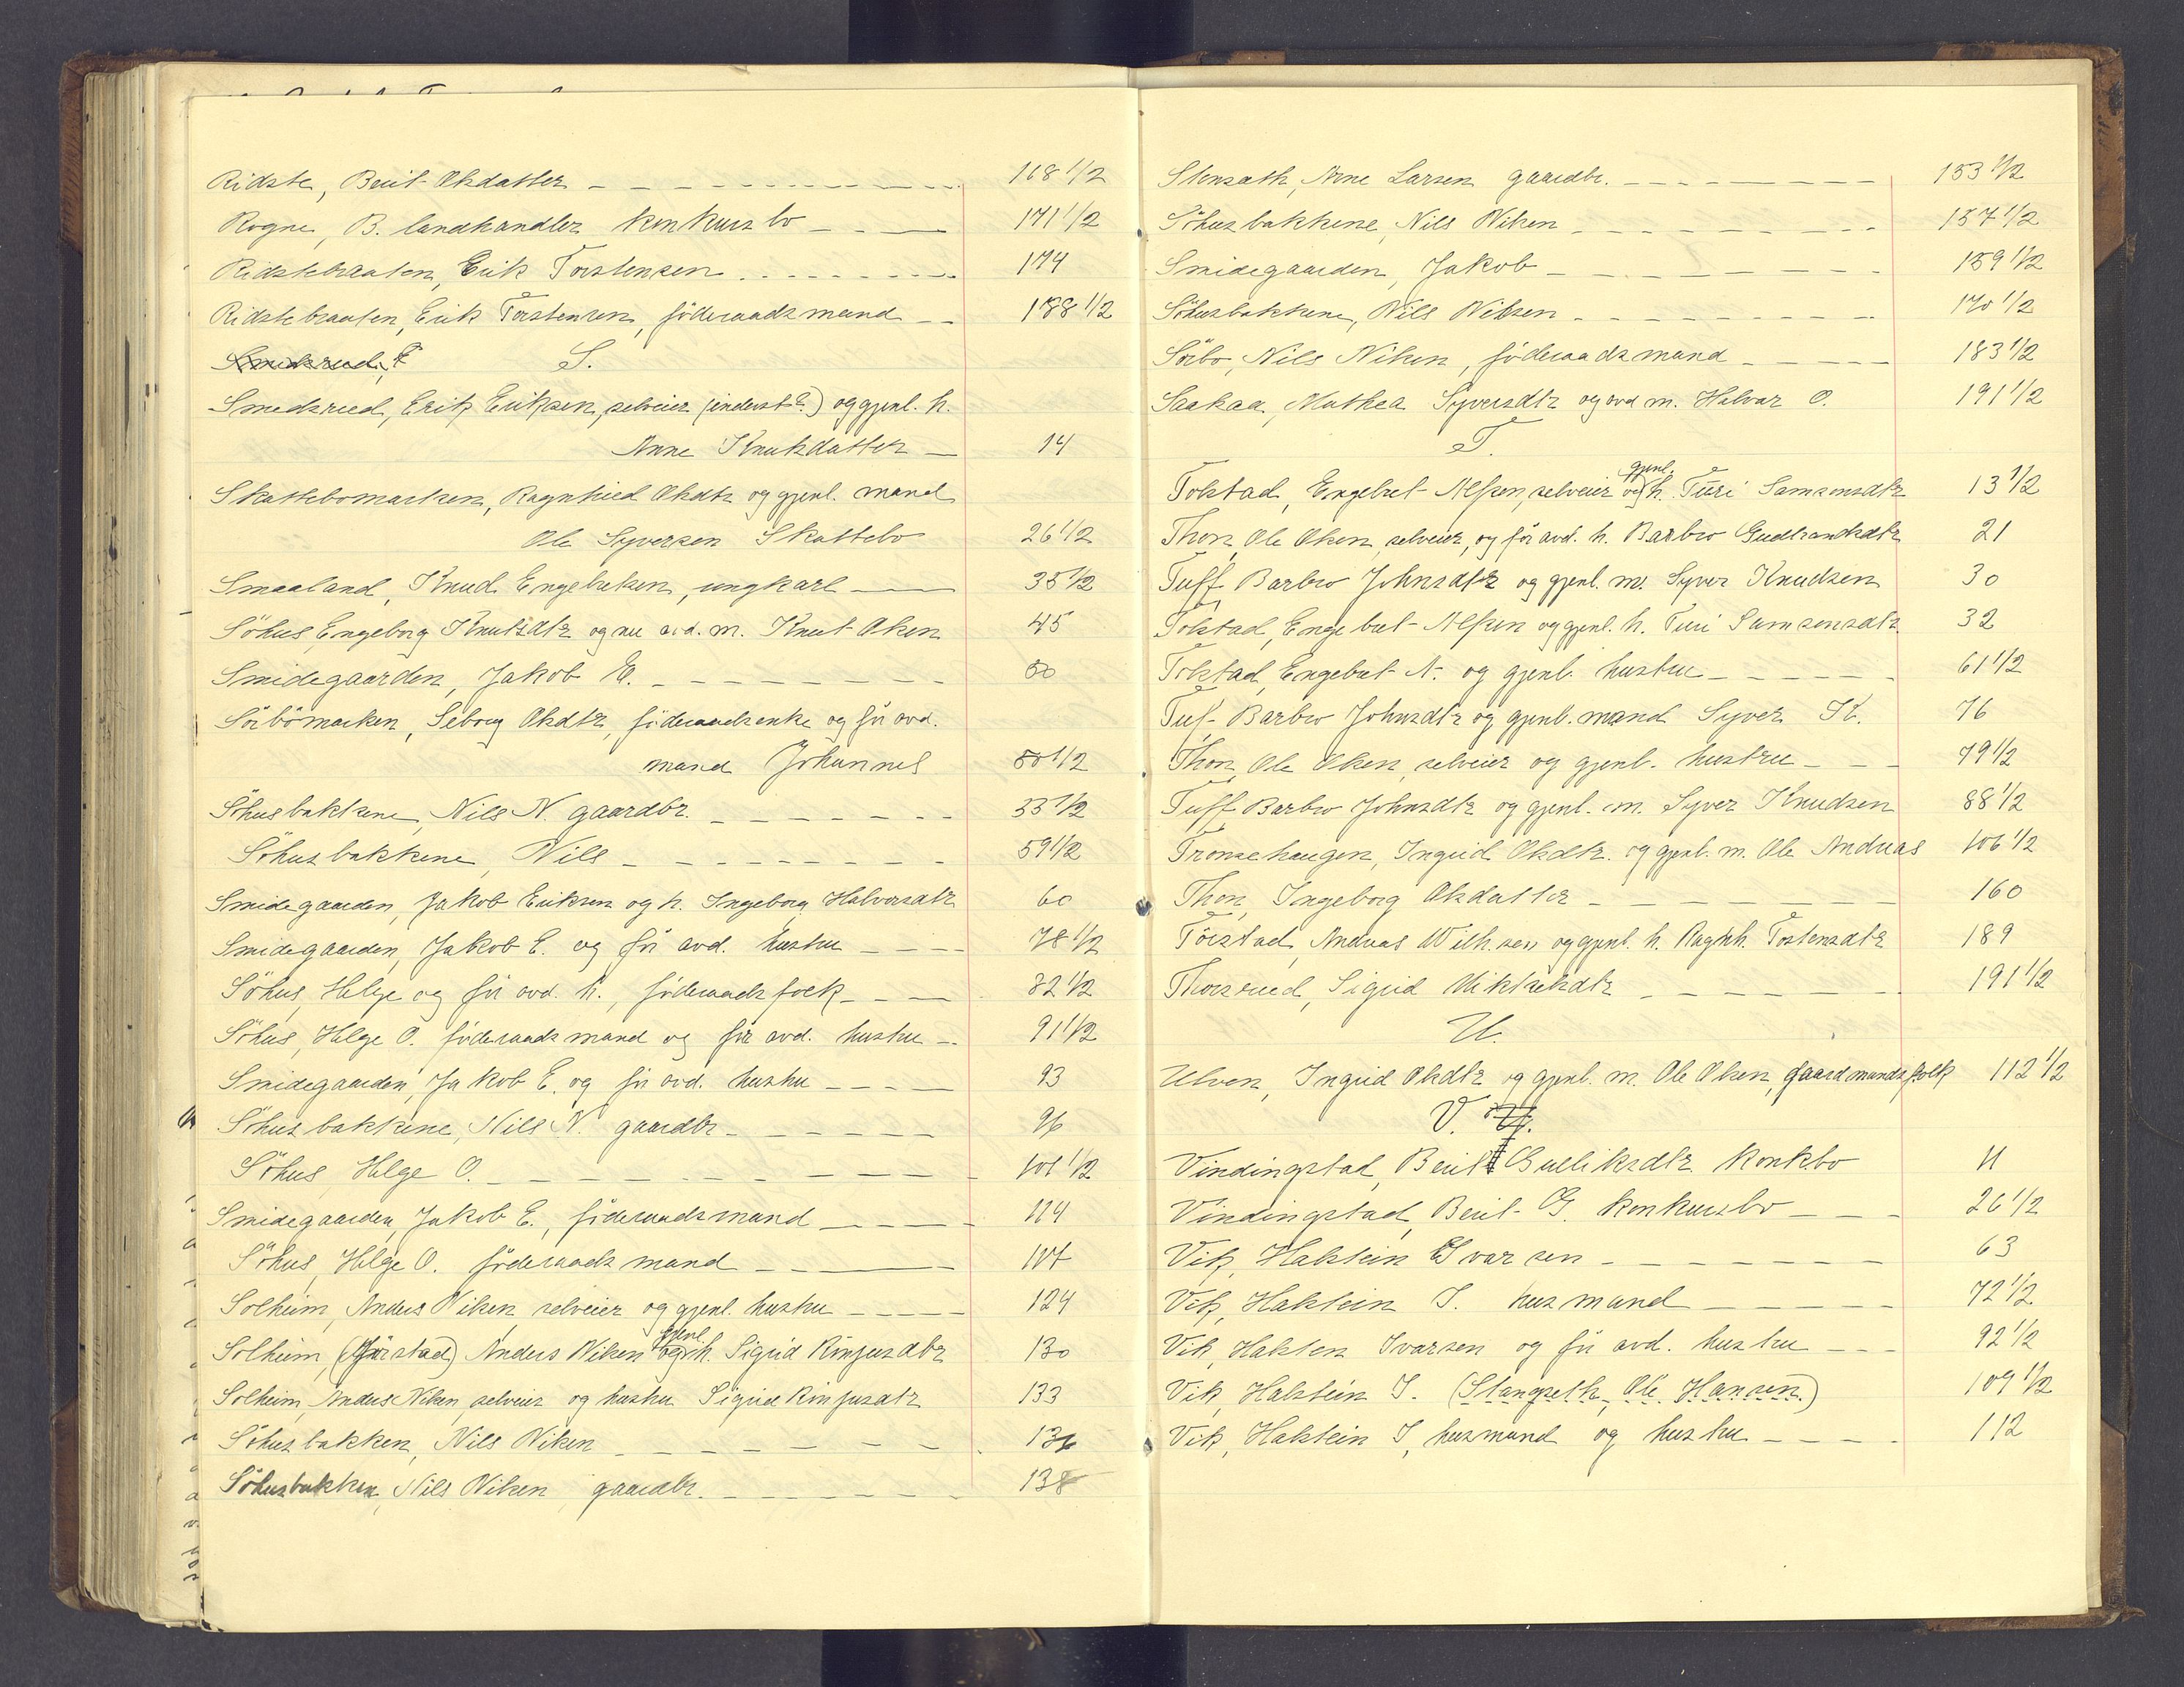 Ridste, Berit Olsdatter 168 1/2
Rogne, B. landhandler konkursbo 171 1/2
Ridstebraaten, Erik Torstensen 174
Ridstebraaten, Erik Torstensen, föderaadsmand 188 1/2
Smedsrud, E S.
Smedsrud, Erik Eriksen, selveier (inderst?) og gjenl. h.
Anne Knutsdatter 14
Skattebomarken, Ragnhild Olsdtr og gjenl. mand
Ole Syversen Skattebo 26 1/2
Smaaland, Knud Engebretsen, ungkarl 35 1/2
Söhus, Engeborg Knutsdtr og nu avd. m. Knut Olsen 45
Smidegaarden, Jakob E. 50
Sörbömarken, Seborg Olsdtr, föderaadsenke og för avd.
mand Johannes 50 1/2
Söhusbakkene, Nils N. gaardbr. 55 1/2
Söhusbakkene, Nils 59 1/2
Smidegaarden, Jakob Eriksen og h. Ingeborg Halvorsdtr 60
Smidegaarden, Jakob E. og för avd. hustru 78 1/2
Söhus, Helge og för avd. h., föderaadsfolk 82 1/2
Söhus, Helge O. föderaadsmand og för avd. hustru 91 1/2
Smidegaarden, Jakob E. og för avd. hustru 93
Söhusbakkene, Nils N. gaardbr. 96
Söhus, Helge O. 101 1/2
Smidegaarden, Jakob E., föderaadsmand 114
Söhus, Helge O. föderaadsmand 117
Solheim, Anders Nilsen, selveier og gjenl. hustru 124
Solheim, Anders Nilsen og gjenl. h. Sigrid Rinjusdtr 130
Solheim, Anders Nilsen, selveier og hustru Sigrid Rinjusdtr 133
Söhusbakken, Nils Nilsen 136
Söhusbakken, Nils Nilsen gaardbr. 138
Stensæth, Arne Larsen gaardbr. 153 1/2
Söhusbakkene, Nils Nilsen 157 1/2
Smidegaarden, Jakob 159 1/2
Söhusbakkene, Nils Nilsen 170 1/2
Sörbo, Nils Nilsen, föderaadsmand 183 1/2
Saakaa, Mathea Syversdtr og avd m. Halvar O. 191 1/2
T.
Tolstad, Engebret Alfsen, selveier og gjenl. h. Turi Samsonsdtr 13 1/2
Thon, Ole Olsen selveier, og för avd. h. Barbro Gudbrandsdtr 21
Tuff, Barbro Johnsdtr og gjenl. m. Syver Knudsen 30
Tolstad, Engebret Alfsen og gjenl. h. Turi Samsonsdtr. 32
Tolstad, Engebret A. og gjenl. hustru 61 1/2
Tuf, Barbro Johnsdtr og gjenl. mand Syver K. 76
Thon, Ole Olsen, selveier og gjenl. hustru 79 1/2
Tuff, Barbro Johnsdtr og gjenl. m. Syver Knudsen 88 1/2
Tronsehaugen, Ingrid Olsdtr. og gjenl. m. Ole Andreas 106 1/2
Thon, Ingeborg Olsdatter 160
Törstad, Andreas Wilh.sen og gjenl. h. Ragnh. Tostensdtr 189
Thorsrud, Sigrid Mikkelsdtr 191 1/2
U.
Ulven, Ingrid Olsdtr og gjenl. m. Ole Olsen, gaardmandsfolk 112 1/2
V.
Vindingstad, Berit Gulliksdtr konkbo 11
Vindingstad, Berit G. konkursbo 26 1/2
Vik, Halstein Ivarsen 63
Vik, Halstein I. husmand 72 1/2
Vik, Halsten Ivarsen og för avd. hustru 92 1/2
Vik, Halstein I. (Stangseth, Ole Hansen) 109 1/2
Vik, Halstein I, husmand og hustru 112